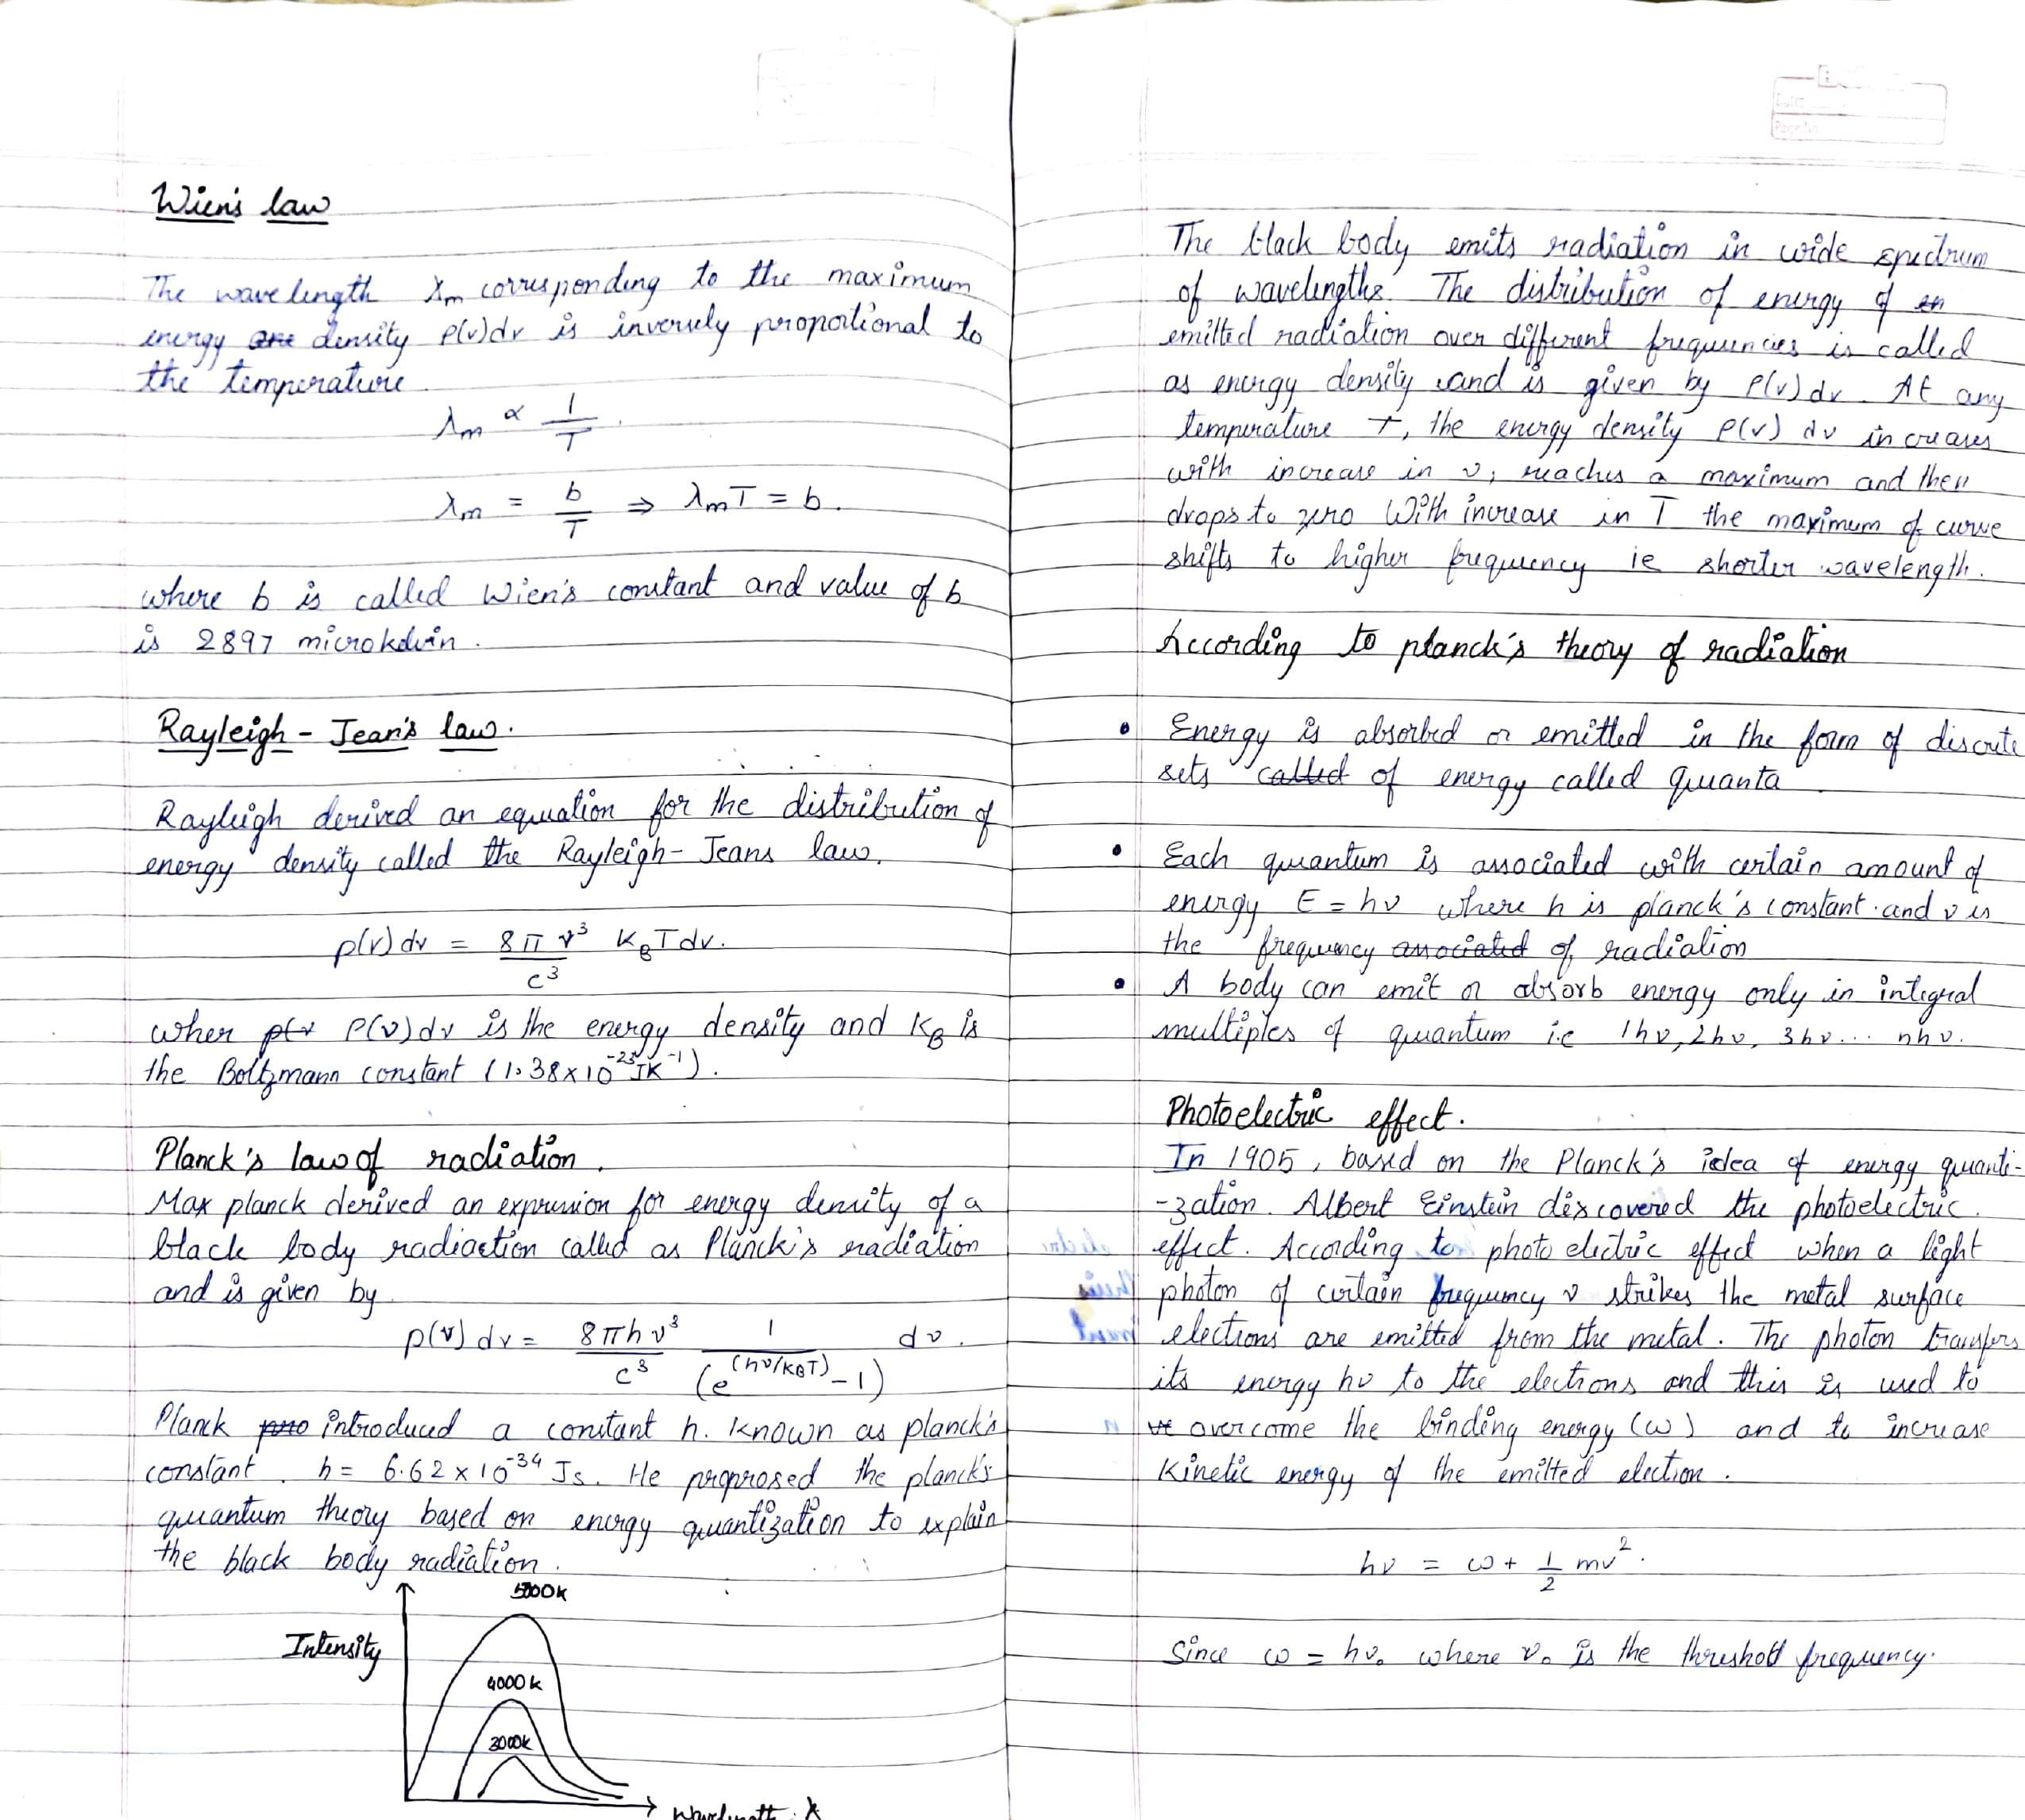 Wien's law
The wavelength λm corresponding to the maximum
energy are density ρ(ν)dν is inversely proportional to
the temperature
λm ∝ 1/T.
λm = b/T ⇒ λmT = b.
where b is called Wien's constant and value of b
is 2897 microkelvin.
Rayleigh - Jean's law.
Rayleigh derived an equation for the distribution of
energy density called the Rayleigh- Jeans law.
ρ(ν)dν = 8πν³/c³ KBTdν.
wher ρ(ν ρ(ν)dν is the energy density and KB is
the Boltzmann constant (1.38x10⁻²³JK⁻¹).
Planck's law of radiation.
Max planck derived an expression for energy density of a
black body radiaction called as Planck's radiation
and is given by
ρ(ν)dν = 8πhν³/c³ 1/(e^(hν/KBT) -1) dν.
Planck introduced a constant h. known as planck's
constant. h = 6.62x10⁻³⁴ Js. He proprosed the planck's
quantum theory based on energy quantization to explain
the black body radiation.
5000k
Intensity
4000k
3000k
Wavelength. λ
Page No.
The black body emits radiation in wide spectrum
of wavelengths. The distribution of energy of en
emitted radiation over different frequencies is called
as energy density and is given by ρ(ν)dν. At any
temperature T, the energy density ρ(ν) dν increases
with increase in ν, reaches a maximum and then
drops to zero With increase in T the maximum of curve
shifts to higher frequency ie shorter wavelength.
According to planck's theory of radiation
• Energy is absorbed or emitted in the form of discrete
sets called of energy called quanta
• Each quantum is associated with certain amount of
energy E = hν where h is planck's constant and ν is
the frequency associated of radiation
• A body can emit or absorb energy only in integral
multiples of quantum i.e 1hν, 2hν, 3hν... nhν.
Photoelectric effect.
In 1905, based on the Planck's idea of energy quanti-
-zation. Albert Einstein discovered the photoelectric
effect. According to photo electric effect when a light
photon of certain frequency ν strikes the metal surface
electrons are emitted from the metal. The photon transfers
its energy hν to the electrons and this is used to
overcome the binding energy (ω) and to increase
Kinetic energy of the emitted electron.
hν = ω + 1/2 mv².
Since ω = hν₀ where ν₀ is the threshold frequency.